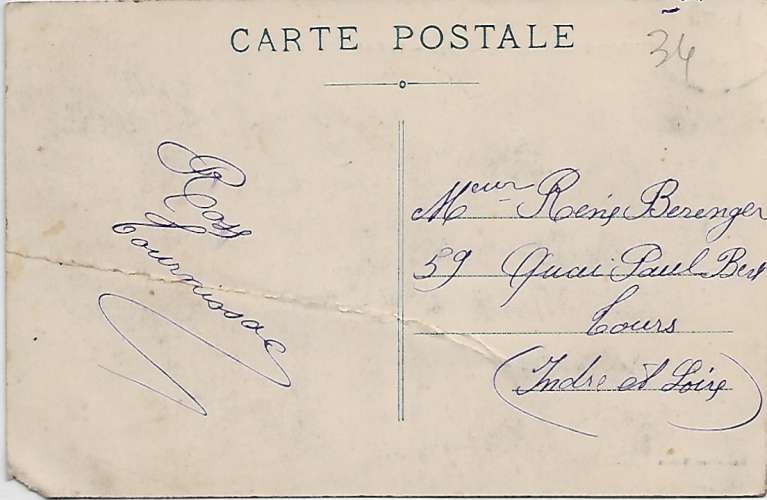 CARTE POSTALE
34
Ross
Tournissac
Meur René Berenger
59 Quai Paul Bert
Tours
(Indre et Loire)